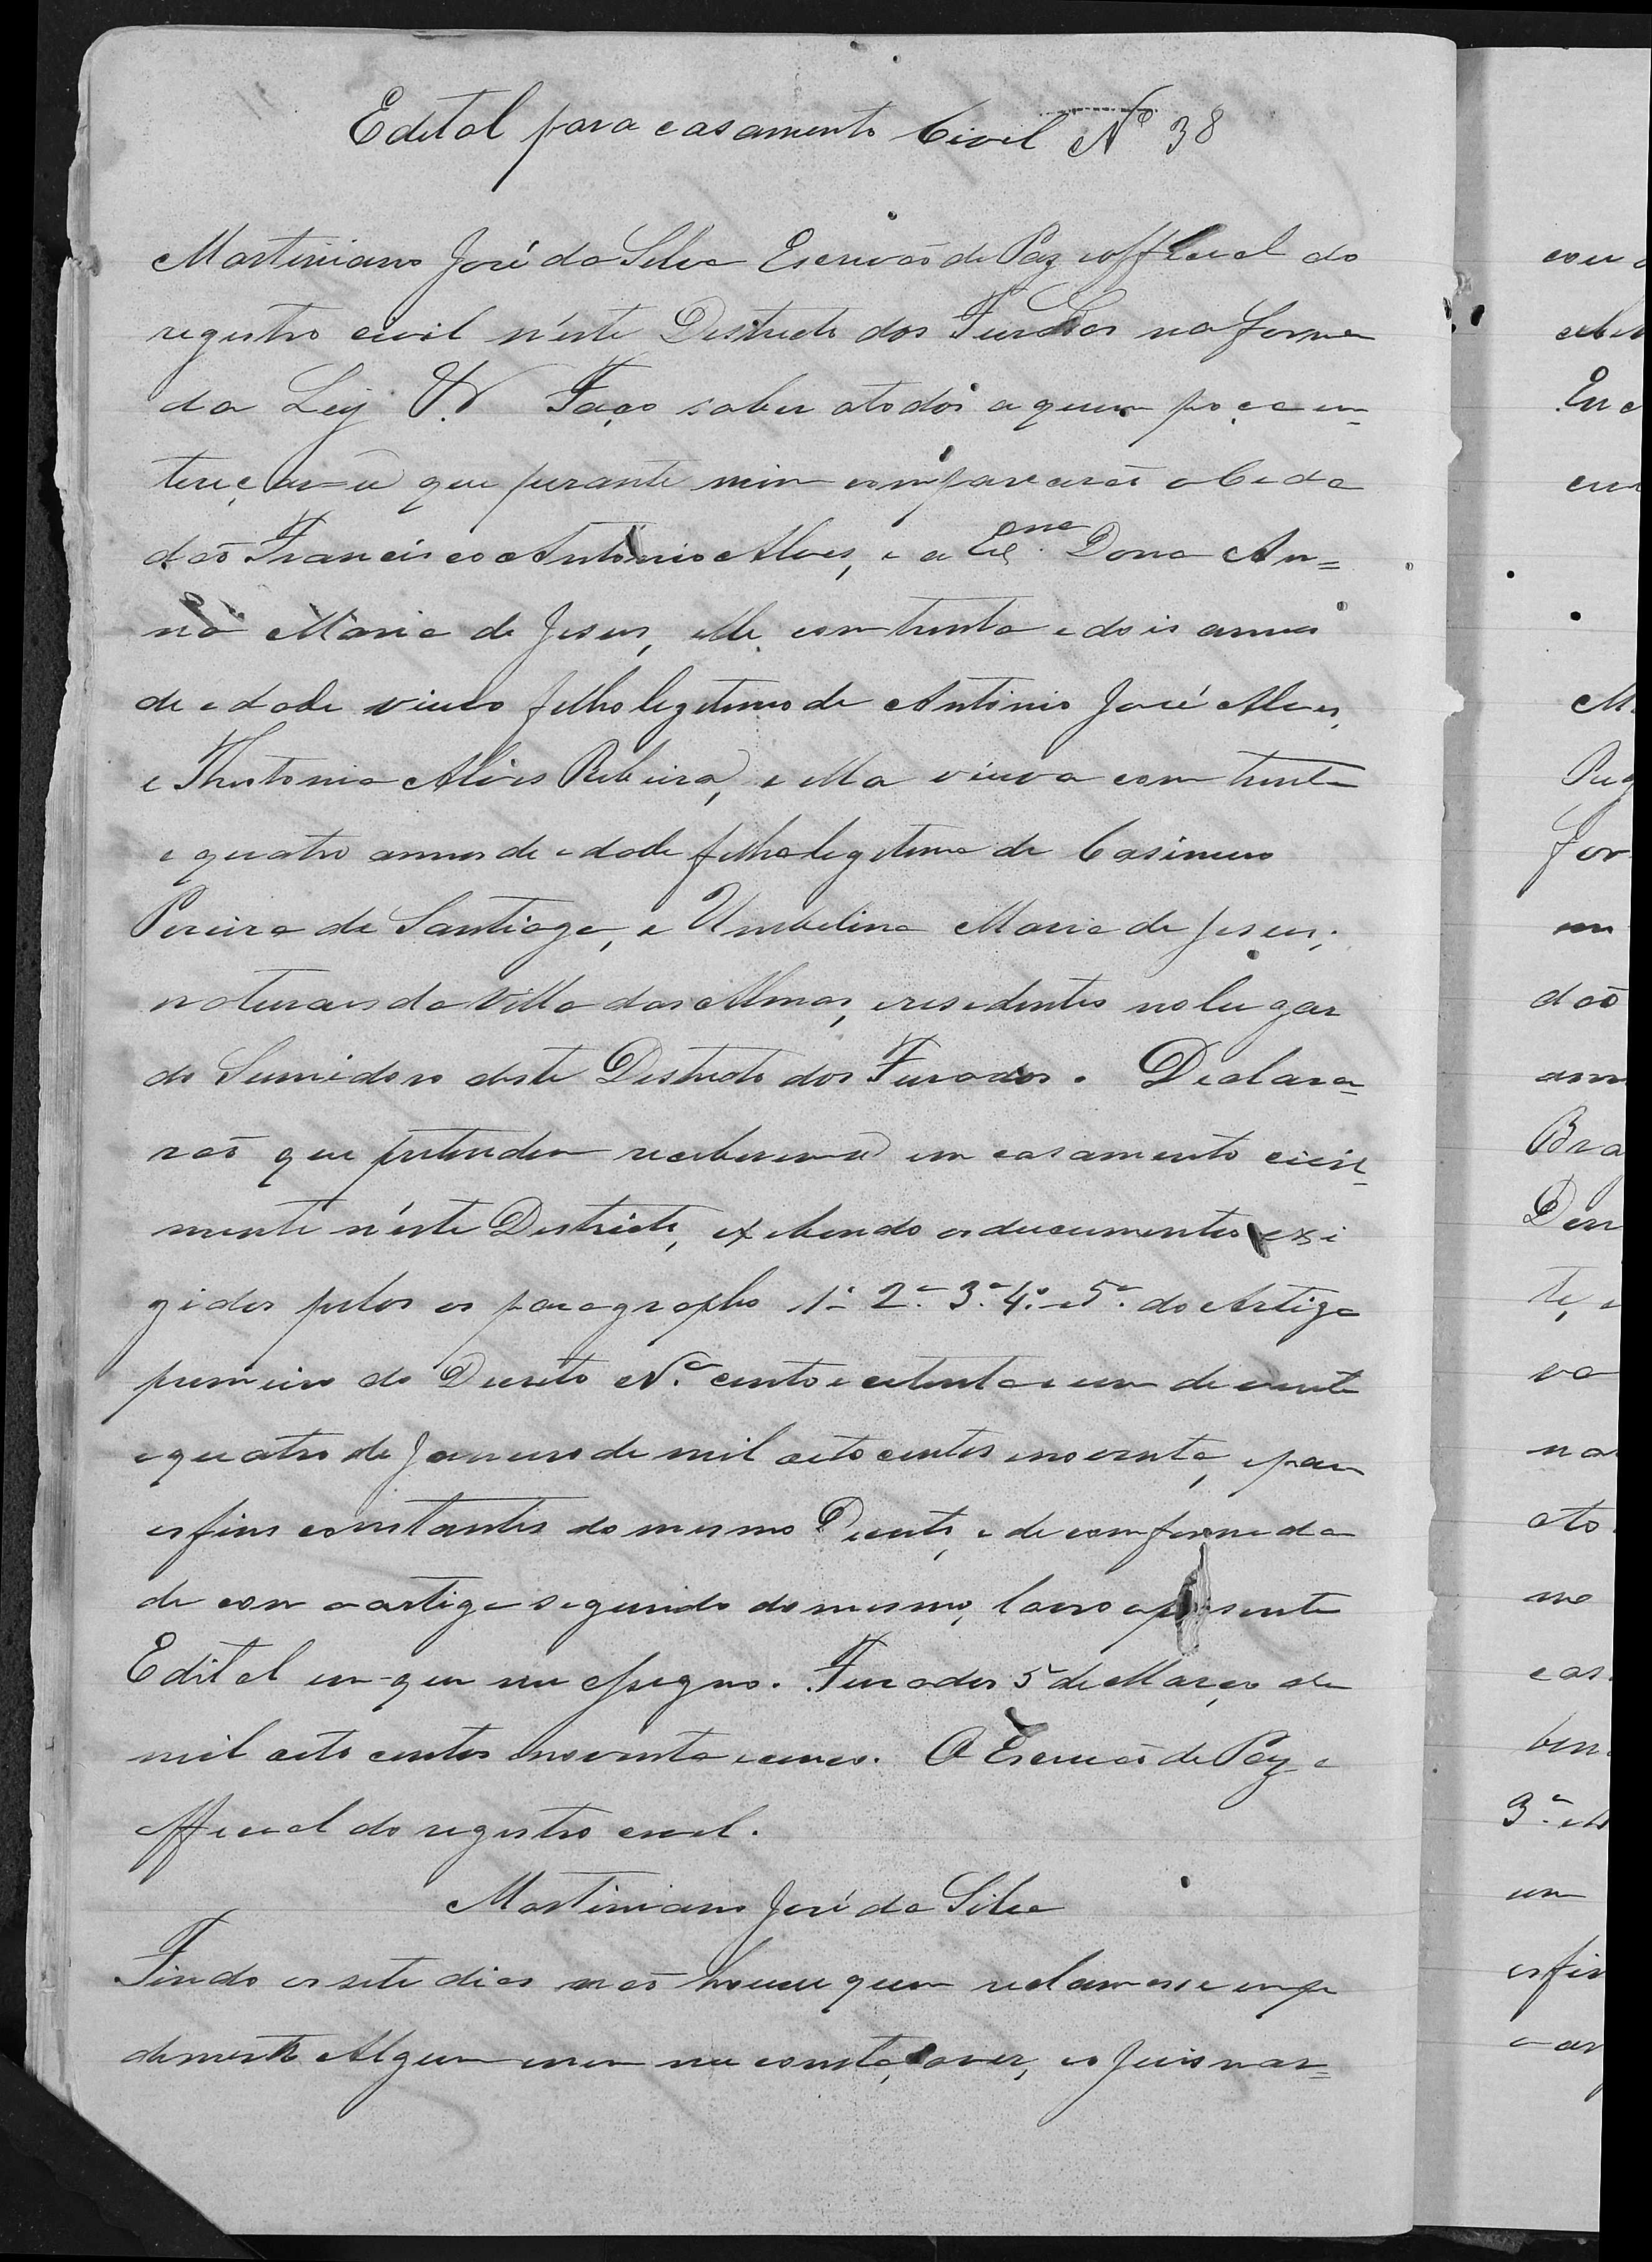 Edital para casamento Civel Nº 38
Martiniano José da Silva Escrivaõ de Paz eofficial do
registro civil n'este Destricto dos Furados na forma
da Ley Faço saber atodos aquem poça en-
tereçar que perante mim comparecerão o Cida
daõ Francisco Antonio Alves, e a Exma Dona An=
na Maria de Jesus, elle com trenta edois annos
de edade viuvo filho legetimo de Antonio José Alves,
e Thiotonia Alves Ribeira, e ella viuva com trenta
e quatro annos de edade filha legetima de Casimiro
Pereira de Santiago, e Umbelina Maria de Jesus;
naturaes da Villa das Almas, eresedentes no lugar
do Sumidoro deste Destricto dos Furados. Declara-
raõ que pretendem receberem-se em casamento civil-
mente n'este Destricto, exebendo os ducumentos exi
gidos pelos os paragrapho 1º 2º 3º 4º e 5º do Artigo
primeiro do Decreto Nº cento e oitenta e um de vinte
equatro de Janeiro de mil oito centos enoventa, epara
osfins constantes do mesmo Decreto, e de comformeda
de com oartigo segundo do mesmo, lavro opresente
Edital em que me assigno. Furados 5 de Março de
mil oito centos enoventa ecinco. O Escrivaõ de Paz e
official do registro civel.
Martiniano José da Silva
Findo os sete dias naõ houve quem reclamasse empe
demento Algum nem me consta, aver, os Juis mar=
cou a
En c
M.
for
daõ
ann
Bra
Den
te, e
va
na
ato
me
cas
ben
3º
um
osfin